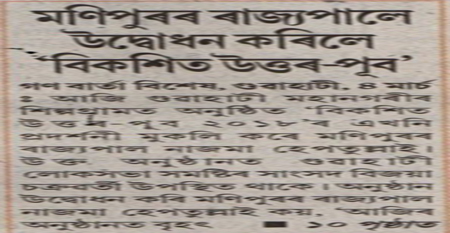 মণিপুৰৰ ৰাজ্যপালে
উদ্বোধন কৰিলে
‘বিকশিত উত্তৰ-পূব’
গণ বাৰ্তা বিশেষ, গুৱাহাটী, ৪ মাৰ্চ
ঃ আজি গুৱাহাটী মহানগৰীৰ
শিল্পগ্ৰামত অনুষ্ঠিত ‘বিকশিত
উত্তৰ-পূব ২০১৮’ৰ এখনি
প্ৰদৰ্শনী মুকলি কৰে মণিপুৰৰ
ৰাজ্যপাল নাজমা হেপতুল্লাই।
উক্ত অনুষ্ঠানত গুৱাহাটী
লোকসভা সমষ্টিৰ সাংসদ বিজয়া
চক্ৰৱৰ্তী উপস্থিত থাকে। অনুষ্ঠান
উদ্বোধন কৰি মণিপুৰৰ ৰাজ্যপাল
নাজমা হেপতুল্লাই কয়, ‘আজিৰ
অনুষ্ঠানত বৃহৎ ■ ১০ পৃষ্ঠাত